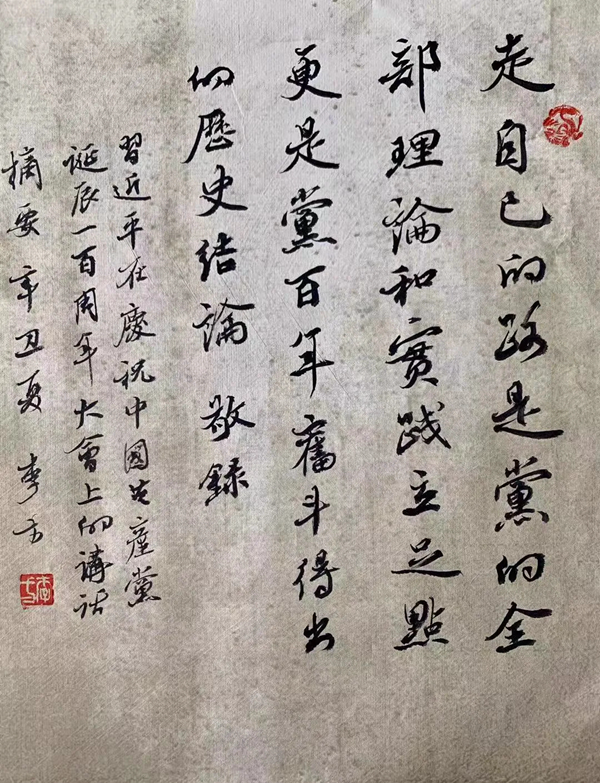 走自己的路是黨的全
部理論和實踐立足點
更是黨百年奮斗得出
的歷史结論 敬録
習近平在慶祝中國共產黨
誕辰一百周年大會上的講話
摘要 辛丑夏 李方